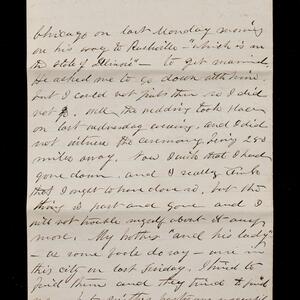 Chicago on last Monday morning
on his way to Rushville - "which is in
the State of Illinois" - to get married.
He asked me to go down with him
but I could not just then so I did
not go. Well the wedding took place
on last Wednesday evening, and I did
not witness the ceremony, being 250
miles away. Now I wish that I had
gone down, and I really think
that I ought to have done so, but the
thing is past and gone and I
will not trouble myself about it any
more. My brother "and his lady"
- as some fools do say - were in
this city on last Friday. I tried to
find them and they tried to find